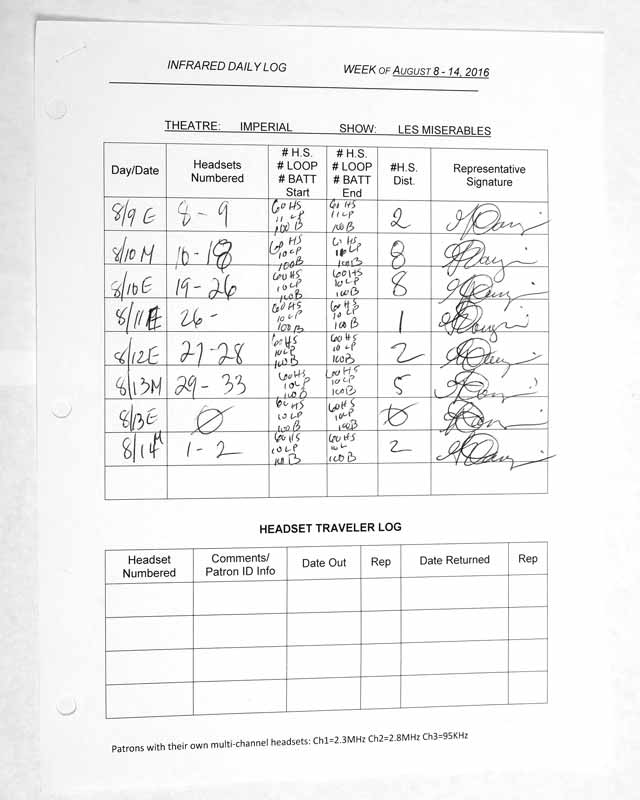 INFRARED DAILY LOG WEEK OF AUGUST 8 - 14, 2016
THEATRE: IMPERIAL SHOW: LES MISERABLES
Day/Date Headsets Numbered # H.S. # LOOP # BATT Start # H.S. # LOOP # BATT End #H.S. Dist. Representative Signature
8/9 E 8 - 9 60 HS 11 LP 100 B 60 HS 11 LP 100 B 2
8/10 M 10 - 18 60 HS 10 LP 100B 60 HS 10 LP 100B 8
8/10 E 19 - 26 60 HS 10 LP 100B 60 HS 10 LP 100B 8
8/11 E 26 - 60 HS 10 LP 100 B 60 HS 10 LP 100B 1
8/12E 27-28 60 HS 10 LP 100B 60 HS 10 LP 100B 2
8/13M 29 - 33 60 HS 10 LP 100 B 60 HS 10 LP 100B 5
8/13 E Ø 60 HS 10 LP 100B 60 HS 10 LP 100B Ø
8/14M 1 - 2 60 HS 10 LP 100 B 60 HS 10 L 100 B 2
HEADSET TRAVELER LOG
Headset Numbered Comments/ Patron ID Info Date Out Rep Date Returned Rep
Patrons with their own multi-channel headsets: Ch1=2.3MHz Ch2=2.8MHz Ch3=95KHz